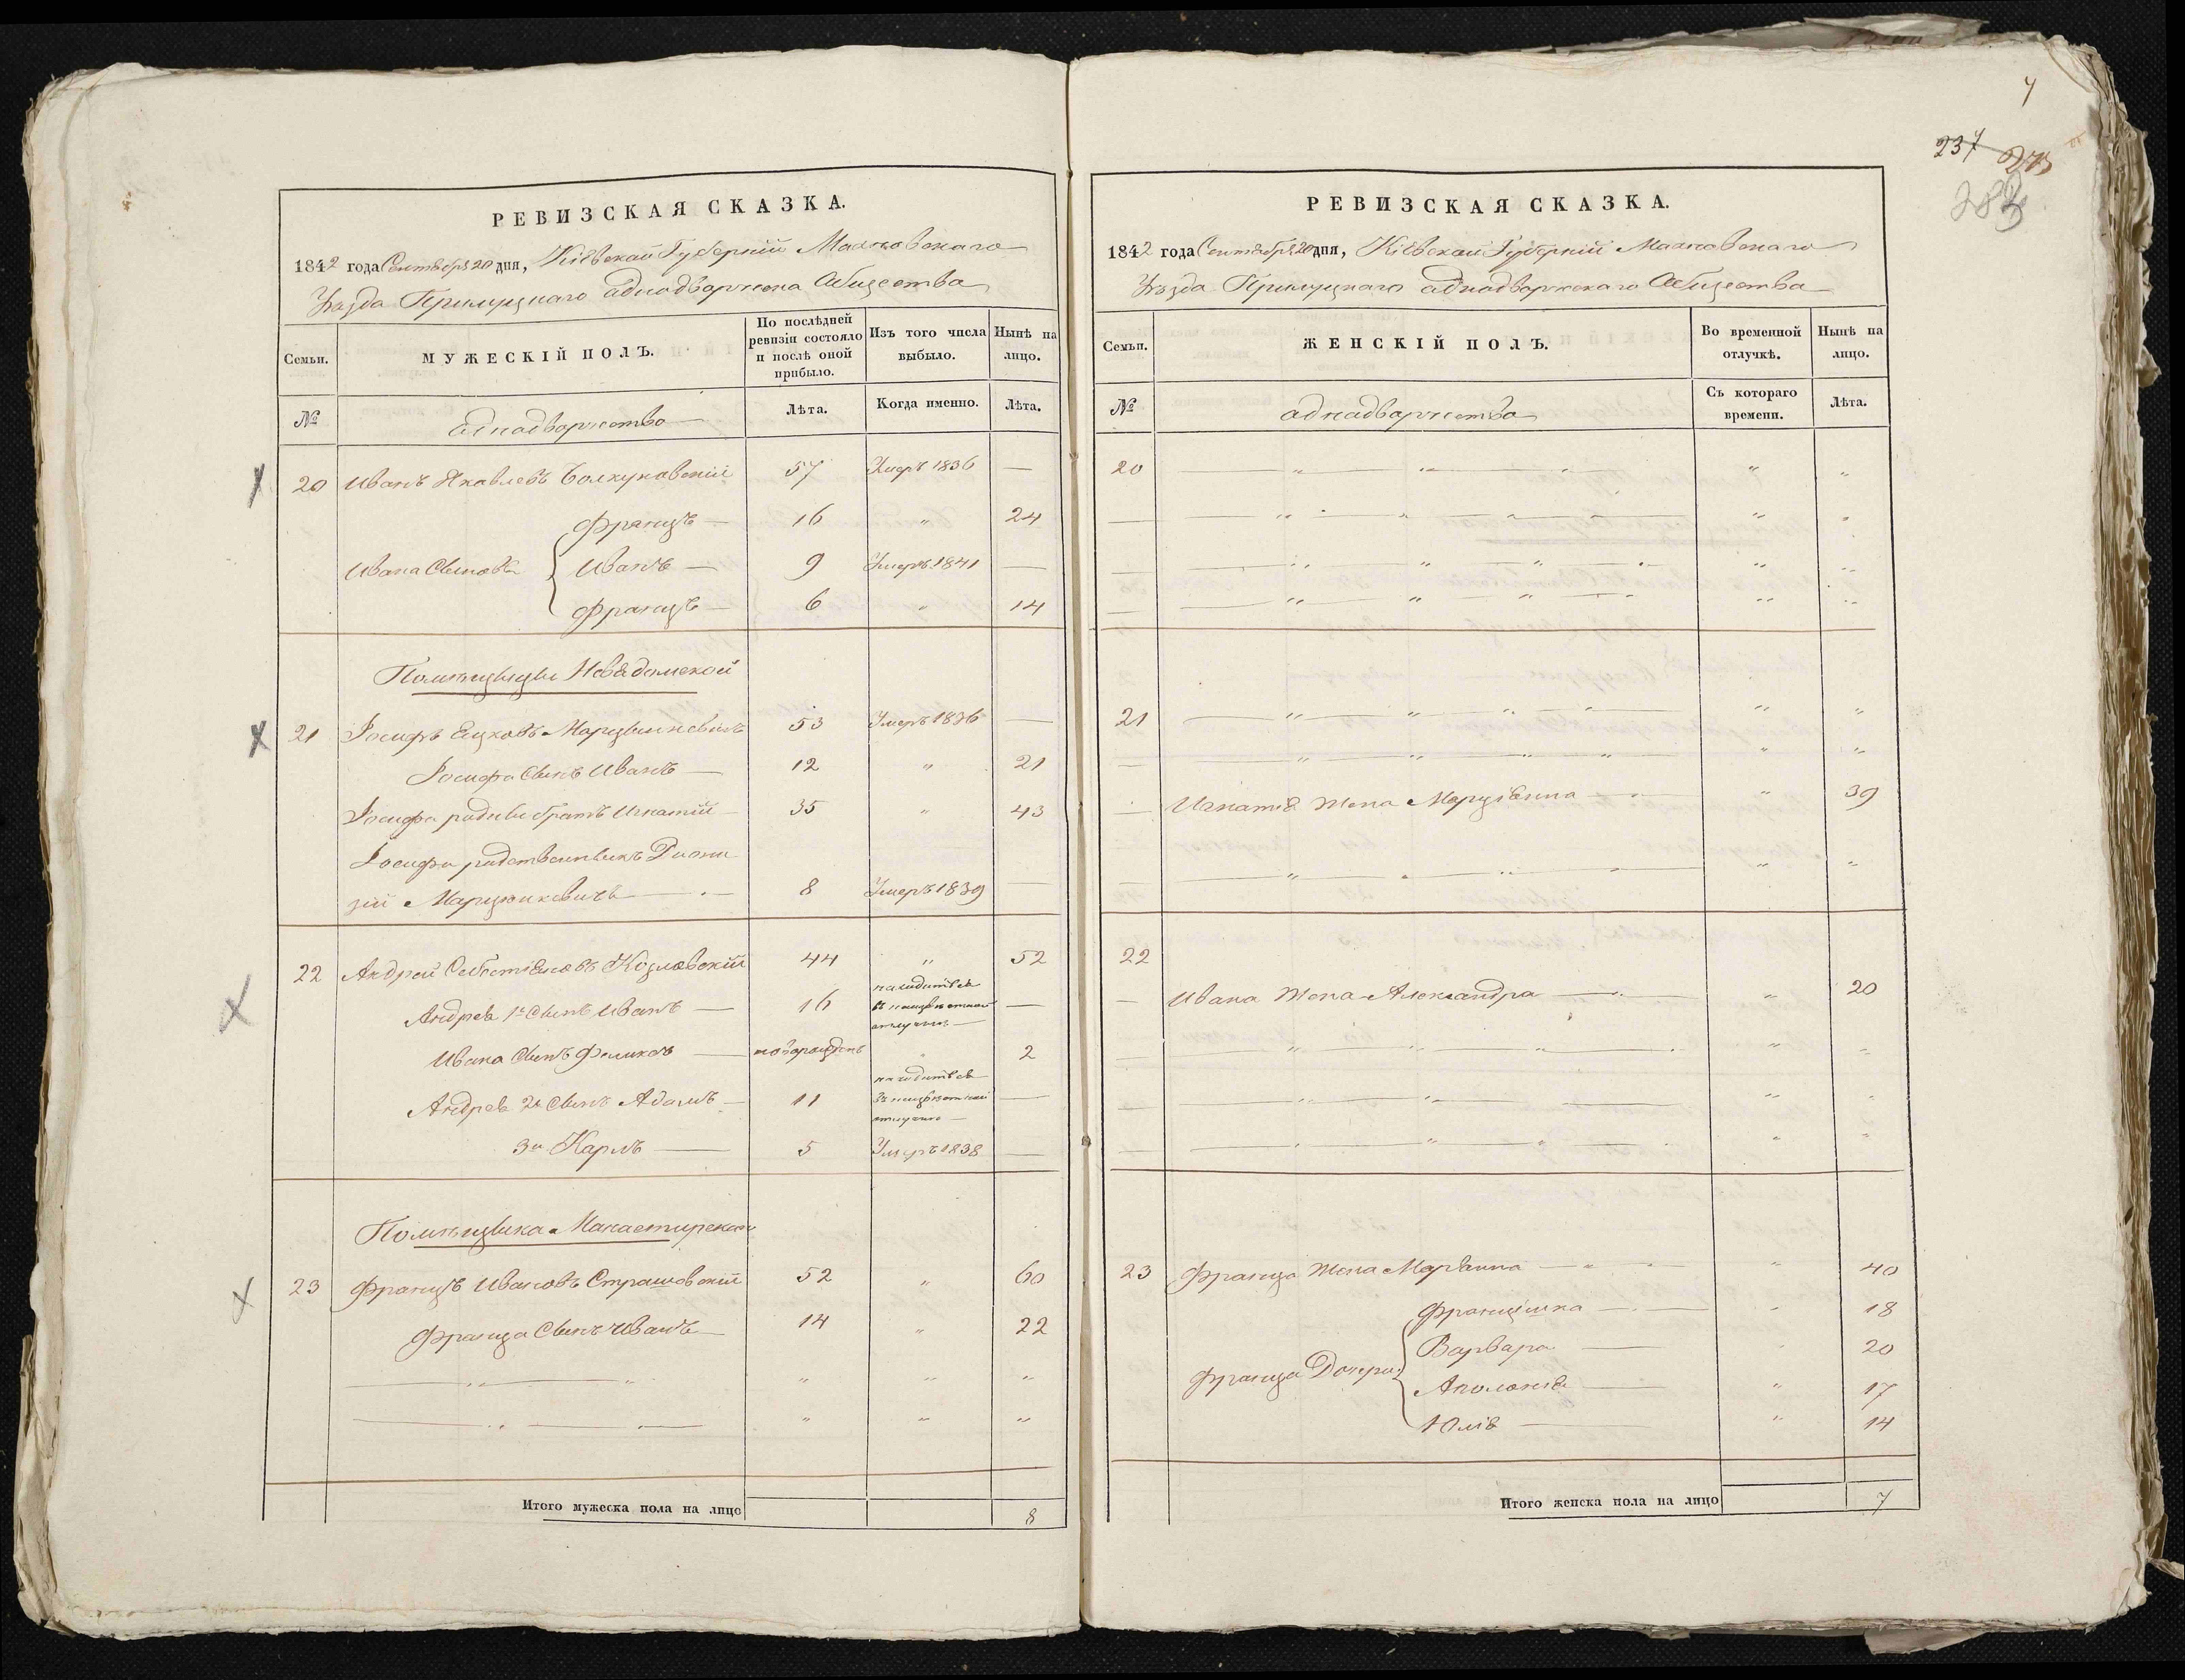 РЕВИЗСКАЯ СКАЗКА.
1842 года Сентября 20 дня, Кіевскай Губерніи Махновскаго
Уѣзда Прилуцкаго аднадворческа Абщества
Семьи.
МУЖЕСКІЙ ПОЛЪ.
По послѣдней ревизіи состояло и послѣ оной прибыло.
Изъ того числа выбыло.
Нынѣ на лицо.
№
аднадворчество
Лѣта.
Когда именно.
Лѣта.
20 Иванъ Яковлевъ 57 Умеръ 1836 —
Францъ — 16 " 24
Ивана Сыновья Иванъ — 9 Умеръ 1841 —
Францъ — 6 " 14
Помѣщицы Невѣдомской
21 Іосифъ Ецковъ Марцинкевичъ 53 Умеръ 1836 —
Іосифа Сынъ Иванъ — 12 " 21
Іосифа родны братъ Игнатій — 35 " 43
Іосифа родственникъ Диони
зій Марцинкевичъ — 8 Умеръ 1839 —
22 Андрей Себестіяновъ Козловскій 44 " 52
Андрея 1й Сынъ Иванъ — 16 находится въ неизвѣстной отлучкѣ —
Ивана Сынъ Феликсъ — новорожденъ " 2
Андрея 2й Сынъ Адамъ — 11 находится въ неизвѣстной отлучкѣ —
3й Карлъ — 5 Умеръ 1838 —
Помѣщика Манастирскаго
23 Францъ Ивановъ Страшовскій 52 " 60
Франца Сынъ Иванъ — 14 " 22
Итого мужеска пола на лицо
8
4
237
283
РЕВИЗСКАЯ СКАЗКА.
1842 года Сентября 20 дня, Кіевскай Губерніи Махновскаго
Уѣзда Прилуцкаго аднадворческаго Абщества
Семьи.
ЖЕНСКІЙ ПОЛЪ.
Во временной отлучкѣ.
Нынѣ на лицо.
№
аднадворчество
Съ котораго времени.
Лѣта.
20
21
Игнатія Жена Марціянна — " 39
22
Ивана Жена Александра — " 20
23 Франца Жена Маріанна — " 40
Францішка — " 18
Варвара — " 20
Франца Дочери Аполонія — " 17
Юлія — " 14
Итого женска пола на лицо
7